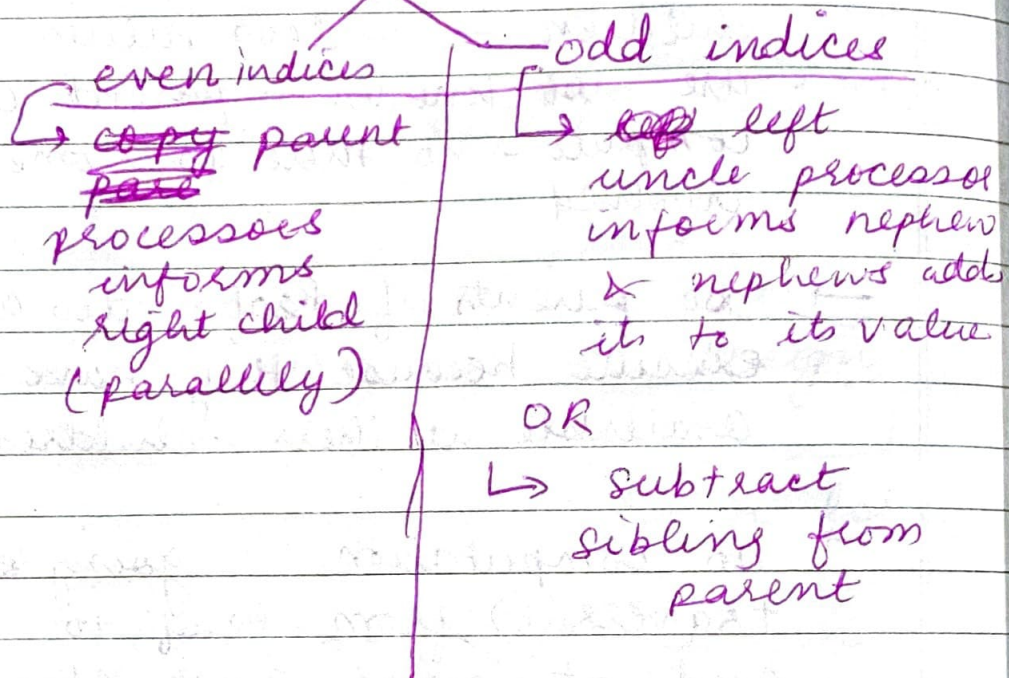 even indices
parent
processors
informs
right child
(parallely)
odd indices
left
uncle processor
informs nephew
& nephews adds
its to its value
OR
subtract
sibling from
parent